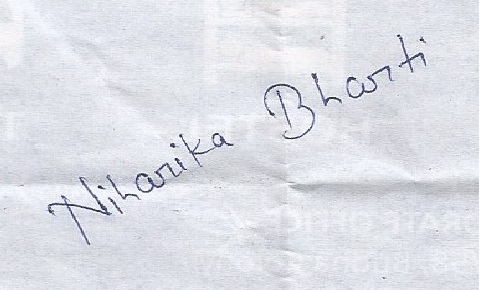 Niharika Bharti